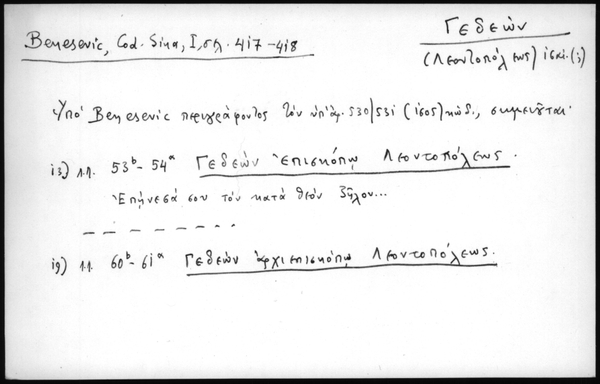 Γεδεών
Benesevic, Cod. Sina, I, σελ. 417-418
(Λεοντοπόλεως)
Ὑπό Benesevic περιγράφοντος τόν ὑπ' ἀρ. 530/531 κώδ., σημειοῦται·
13) λ.λ. 53b-54a Γεδεών ἐπισκόπῳ Λεοντοπόλεως.
Ἐπήνεσά σου τόν κατά θεόν ζῆλον...
19) λ.λ. 60b-61a Γεδεών ἀρχιεπισκόπῳ Λεοντοπόλεως.